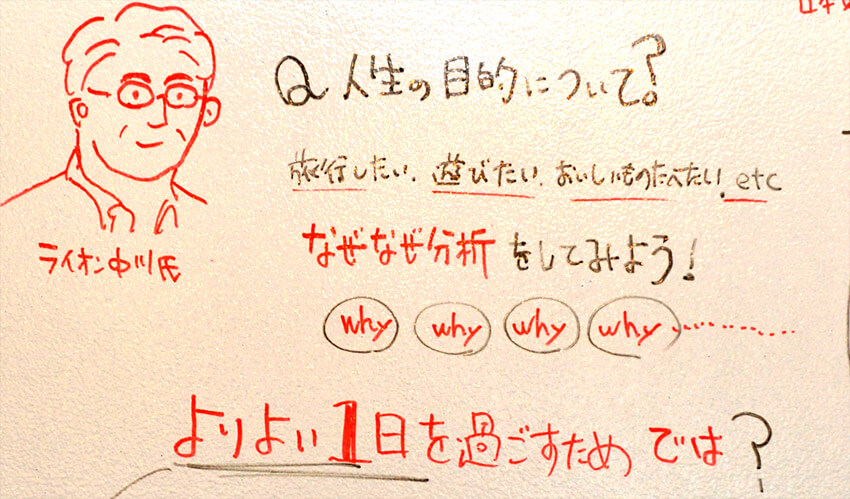 Q 人生の目的について?
旅行したい、遊びたい、おいしいものたべたい、etc
なぜなぜ分析をしてみよう!
why why why why
ライオン中川氏
よりよい1日を過ごすためでは?